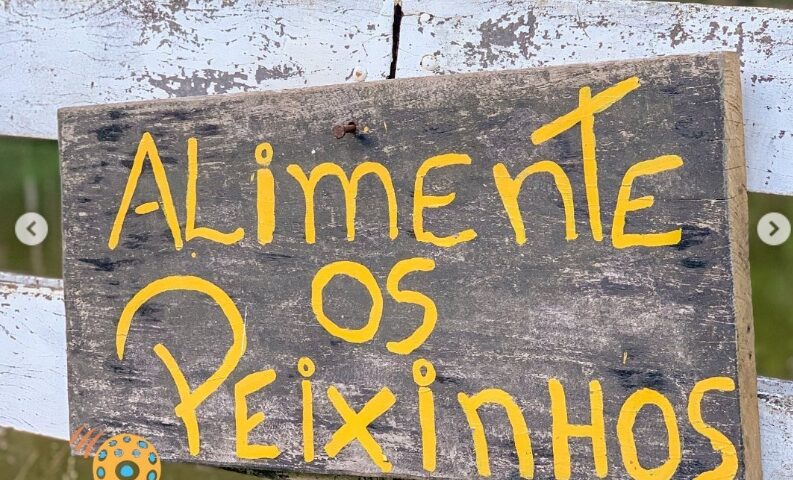 ALimENTE
OS
PEixinHOS